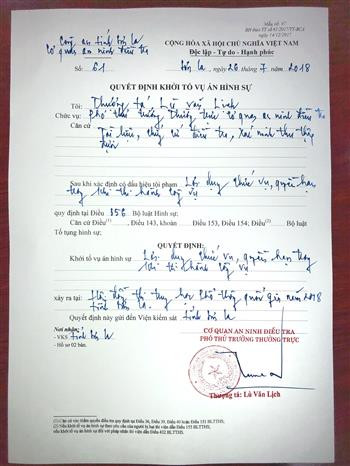 Mẫu số: 97
BH theo TT số 61/2017/TT-BCA
ngày 14/12/2017
Công an tỉnh Sơn La
Cơ quan an ninh điều tra
CỘNG HÒA XÃ HỘI CHỦ NGHĨA VIỆT NAM
Độc lập - Tự do - Hạnh phúc
Số: 61
Sơn La, ngày 26 tháng 7 năm 2018
QUYẾT ĐỊNH KHỞI TỐ VỤ ÁN HÌNH SỰ
Tôi: Thượng tá Lù Văn Lịch
Chức vụ: Phó thủ trưởng Thường trực cơ quan an ninh điều tra
Căn cứ Tài liệu, chứng cứ điều tra, xác minh thu thập
được
Sau khi xác định có dấu hiệu tội phạm Lợi dụng chức vụ, quyền hạn
trong khi thi hành công vụ
quy định tại Điều 356 Bộ luật Hình sự;
Căn cứ Điều, Điều 143, khoản Điều 153, Điều 154; Điều Bộ luật
Tố tụng hình sự;
QUYẾT ĐỊNH:
Khởi tố vụ án hình sự Lợi dụng chức vụ, quyền hạn trong
khi thi hành công vụ
xảy ra tại: Hội đồng thi trung học phổ thông quốc gia năm 2018
tỉnh Sơn La
Quyết định này gửi đến Viện kiểm sát tỉnh Sơn La
Nơi nhận:
- VKS tỉnh Sơn La
- Hồ sơ 02 bản.
CƠ QUAN AN NINH ĐIỀU TRA
PHÓ THỦ TRƯỞNG THƯỜNG TRỰC
Thượng tá: Lù Văn Lịch